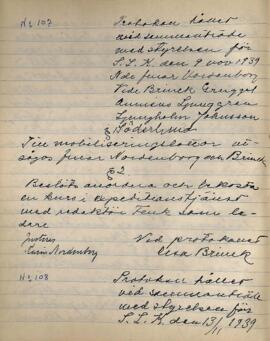 No 107
Protokoll hållet
vid sammanträde
med styrelsen för
S. L. K. den 9 nov 1939
Nde fruar Nordenborg
Vide Brinck
Ljunggren
Ljungholm Johansson
§ Söderlund
Till mobiliseringslottor ut-
sågos fruar Nordenborg och Brinck
§ 2
Beslöts anordna och bekosta
en kurs i expeditionstjänst
med redaktör Funk som le-
dare
Justeras
Karin Nordenborg
Vid protokollet
Elsa Brinck
No 108
Protokoll hållet
vid sammanträde
med styrelsen för
S. L. K. den 13/1 1939